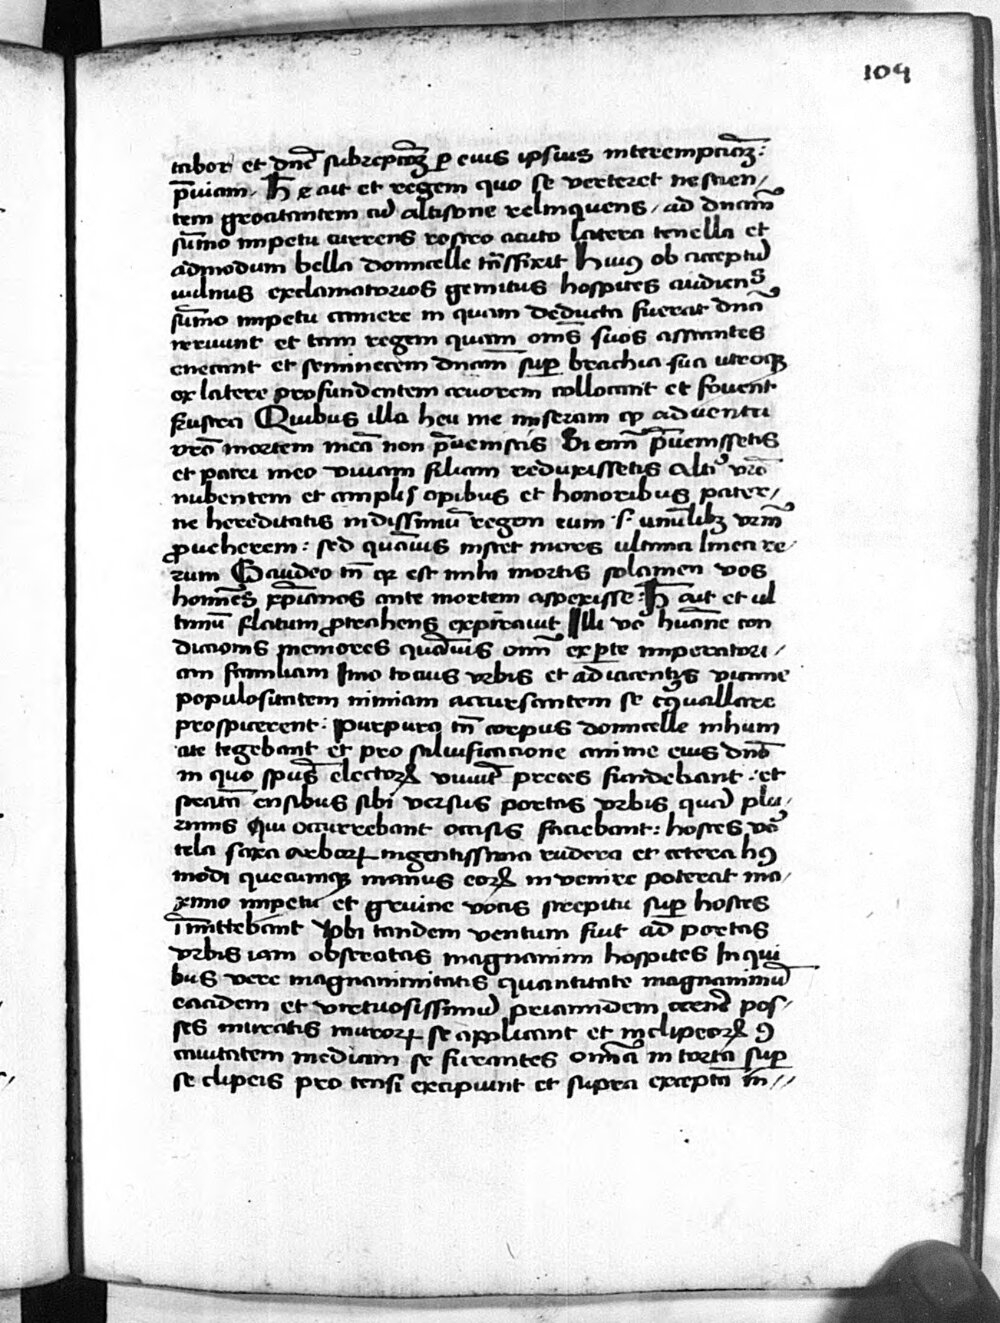 104
tabor et dn̄e subrepcōꝫ ꝑ eius ipsius interempcōꝫ:
p̄uiam. H ait et regem quo se verteret nescien/
tem grocitantem altisone relinquens / ad dnam̄
sūmo impetu currens rostro acuto latera tenella et
admodum bella domicelle tn̄sfixit Huiꝰ ob acceptū
wlnus exclamatorios gemitus hospites audiens
sūmo impetu camere in quam deducta fuerat dn̄a
reruunt et tam regem quam om̄s suos asstantes
enecant et seminecem dnam̄ suꝑ brachia sua utroqꝫ
ex latere profundentem cruorem collocant et fouent
frustra Quibus illa heu me miseram qꝫ aduentu
vr̄o mortem meā non p̄uenistis Si enī p̄uenissetis
et patri meo viuam filiam reduxissetis alti vr̄o
nubentem et amplis opibus et honoribus pater/
ne hereditatis in dissimū regem eum .s. vrm̄
ꝓueherem: sed quāuis instet mors ultima linea re/
rum Gaudeo tn̄ qꝫ est mihi mortis solamen vos
homīes xp̄ianos ante mortem aspexisse: H ait et ul
timū flatum ꝓtrahens expirauit Illi vō huāne con
dicionis memores quāuis om̄ ex ꝑte imperatori/
am familiam Imo tocius vrbis et adiacentis vicine
populositatem nimiam accursantem se cōuallare
prospicerent: purpura tn̄ corpus domicelle inhum
ate tegebant et pro saluificacione anime eius dn̄o
in quo spūs electoꝝ viuūt preces fundebant: et
stratā ensibus sibi versus portas vrbis quā plu/
rimis Qui occurrebant occisis faciebant: hostes vō
tela saxa arboꝝ ingentissima rudera et cetera hꝰ
modi quecumqꝫ manus eoꝝ inuenire poterat ma/
ximo impetu et graui vocis strepitu suꝑ hostes
īmittebant Vbi tandem ventum fuit ad portas
vrbis iam obseratas magnanimi hospites In qui
bus vere magnanimitatis quantitate magnanimū
eacidem et virtuosissimū priamidem cernē pos/
ses muratis muroꝝ se applicant et in clipeoꝝ ꝯ
cauitatem mediam se fixantes om̄ia in torta suꝑ
se clipeis pro tensi excipiunt et supra excepta in̄//